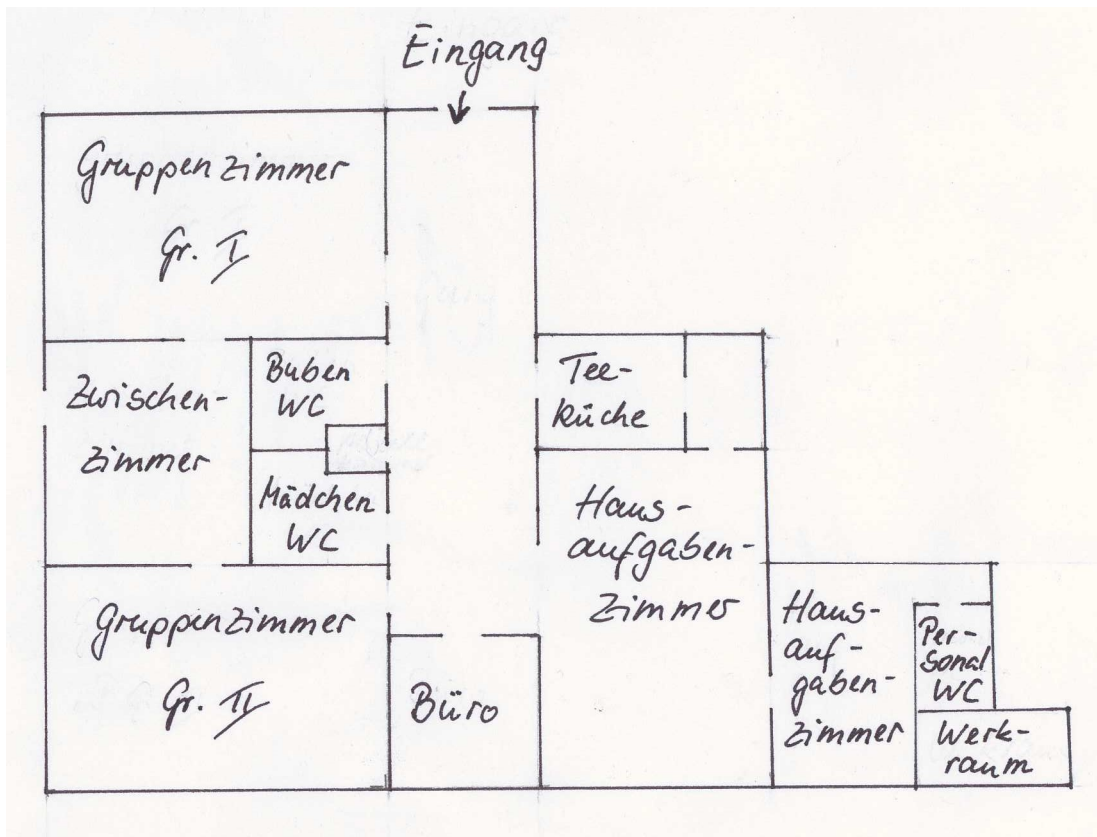 Eingang
Gruppenzimmer
Gr. I
Zwischen-
zimmer
Buben
WC
Mädchen
WC
Gruppenzimmer
Gr. II
Büro
Tee-
küche
Haus-
aufgaben-
zimmer
Haus-
auf-
gaben-
zimmer
Per-
sonal
WC
Werk-
raum